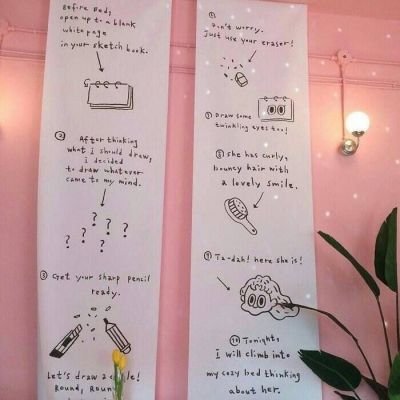 Before Bed,
open up to a blank
white page
in your sketch book.
②
After thinking
what I should draw,
i decided
to draw whatever
came to my mind.
? ? ? ? ? ?
③ Get your sharp pencil
ready.
Let's draw a
Round, Roun
Don't worry.
Just use your eraser!
Draw some
twinkling eyes too!
⑧ She has curly,
bouncy hair with
a lovely smile.
⑨ Ta-dah! here she is!
⑩ Tonight,
I will climb into
my cozy bed thinking
about her.